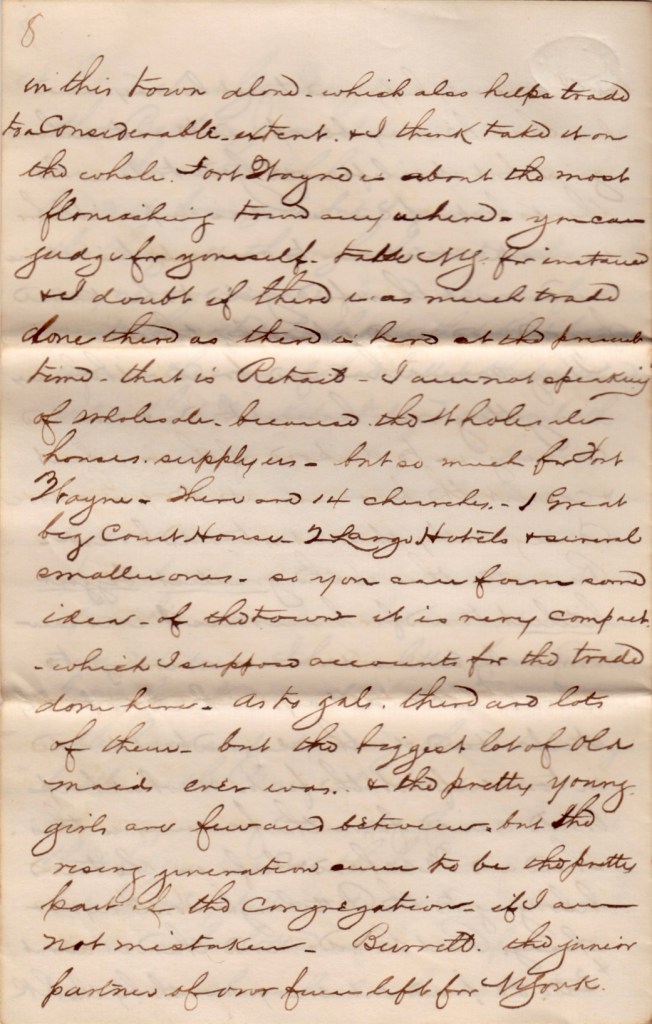 8
in this town alone - which also helps trade
to a Considerable extent. & I think take it on
the whole. Fort Wayne is about the most
florishing town any where - you can
judge for yourself - take NY. for instance
& I doubt if there is as much trade
done there as there is here at the present
time - that is Retail - I am not speaking
of wholesale. because the Wholesale
houses supply us - but so much for Fort
Wayne - There are 14 churches - 1 Great
big Court House - 2 Large Hotels & several
smaller ones - so you can form some
idea - of the town it is very compact.
- which I suppose accounts for the trade
done here - as to gals. there are lots
of them - but the biggest lot of Old
maids ever was. & the pretty young
girls are few and between. but the
rising generation seem to be the pretty
part of the Congregation - if I am
not mistaken - Burrett. the junior
partner of our firm left for NYork.